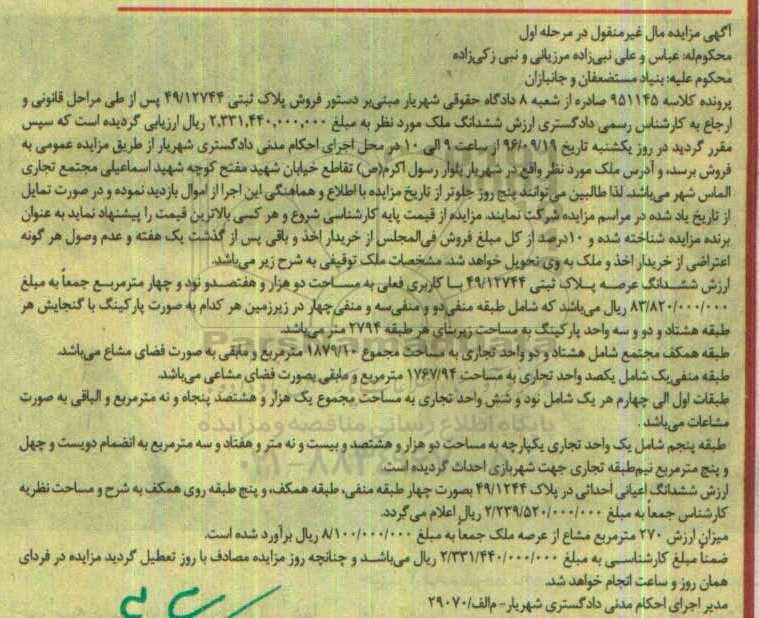 آگهی مزایده مال غیرمنقول در مرحله اول
محکوم‌له: عباس و علی نبی‌زاده مرزبانی و نبی زکی‌زاده
محکوم علیه: بنیاد مستضعفان و جانبازان
پرونده کلاسه ۹۵۱۱۴۵ صادره از شعبه ۸ دادگاه حقوقی شهریار مبنی‌بر دستور فروش پلاک ثبتی ۴۹/۱۲۷۴۴ پس از طی مراحل قانونی و
ارجاع به کارشناس رسمی دادگستری ارزش ششدانگ ملک مورد نظر به مبلغ ۲,۳۳۱,۴۴۰,۰۰۰,۰۰۰ ریال ارزیابی گردیده است که سپس
مقرر گردید در روز یکشنبه تاریخ ۹۶/۰۹/۱۹ از ساعت ۹ الی ۱۰ در محل اجرای احکام مدنی دادگستری شهریار از طریق مزایده عمومی به
فروش برسد، و آدرس ملک مورد نظر واقع در شهریار بلوار رسول اکرم(ص) تقاطع خیابان شهید مفتح کوچه شهید اسماعیلی مجتمع تجاری
الماس شهر می‌باشد. لذا طالبین می‌توانند پنج روز جلوتر از تاریخ مزایده با اطلاع و هماهنگی این اجرا از اموال بازدید نموده و در صورت تمایل
از تاریخ یاد شده در مراسم مزایده شرکت نمایند. مزایده از قیمت پایه کارشناسی شروع و هر کسی بالاترین قیمت را پیشنهاد نماید به عنوان
برنده مزایده شناخته شده و ۱۰درصد از کل مبلغ فروش فی‌المجلس از خریدار اخذ و باقی پس از گذشت یک هفته و عدم وصول هر گونه
اعتراضی از خریدار اخذ و ملک به وی تحویل خواهد شد. مشخصات ملک توقیفی به شرح زیر می‌باشد.
ارزش ششدانگ عرصه پلاک ثبتی ۴۹/۱۲۷۴۴ با کاربری فعلی به مساحت دو هزار و هفتصدو نود و چهار مترمربع جمعاً به مبلغ
۸۳/۸۲۰/۰۰۰/۰۰۰ ریال می‌باشد که شامل طبقه منفی‌دو و منفی‌سه و منفی‌چهار در زیرزمین هر کدام به صورت پارکینگ با گنجایش هر
طبقه هشتاد و دو و سه واحد پارکینگ به مساحت زیربنای هر طبقه ۲۷۹۴ متر می‌باشد.
طبقه همکف مجتمع شامل هشتاد و دو واحد تجاری به مساحت مجموع ۱۸۷۹/۱۰ مترمربع و مابقی به صورت فضای مشاع می‌باشد.
طبقه منفی‌یک شامل یکصد واحد تجاری به مساحت ۱۷۶۷/۹۴ مترمربع و مابقی بصورت فضای مشاعی می‌باشد.
طبقات اول الی چهارم هر یک شامل نود و شش واحد تجاری به مساحت مجموع یک هزار و هشتصد پنجاه و نه مترمربع و الباقی به صورت
مشاعات می‌باشد.
طبقه پنجم شامل یک واحد تجاری یکپارچه به مساحت دو هزار و هشتصد و بیست و نه متر و هفتاد و سه مترمربع به انضمام دویست و چهل
و پنج مترمربع نیم‌طبقه تجاری جهت شهربازی احداث گردیده است.
ارزش ششدانگ اعیانی احداثی در پلاک ۴۹/۱۲۴۴ بصورت چهار طبقه منفی، طبقه همکف، و پنج طبقه روی همکف به شرح و مساحت نظریه
کارشناس جمعاً به مبلغ ۲/۲۳۹/۵۲۰/۰۰۰/۰۰۰ ریال اعلام می‌گردد.
میزان ارزش ۲۷۰ مترمربع مشاع از عرصه ملک جمعاً به مبلغ ۸/۱۰۰/۰۰۰/۰۰۰ ریال برآورد شده است.
ضمناً مبلغ کارشناسی به مبلغ ۲/۳۳۱/۴۴۰/۰۰۰/۰۰۰ ریال می‌باشد و چنانچه روز مزایده مصادف با روز تعطیل گردید مزایده در فردای
همان روز و ساعت انجام خواهد شد.
مدیر اجرای احکام مدنی دادگستری شهریار- م‌الف/۲۹۰۷۰
ParsNamadData
پایگاه اطلاع رسانی مناقصه و مزایده